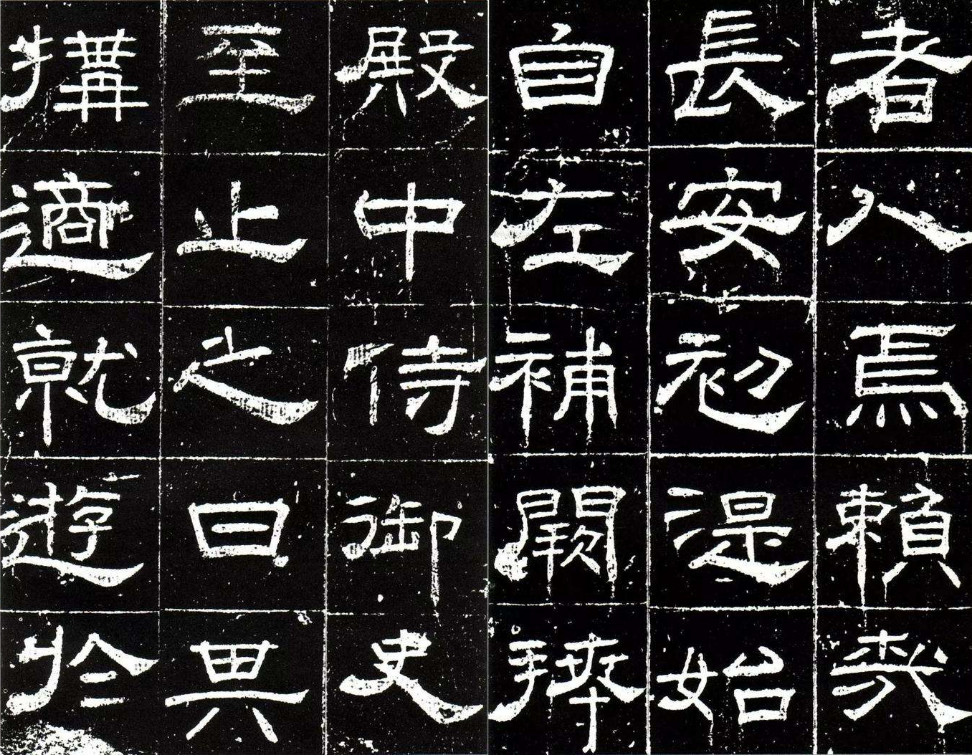 者八焉賴
長安初湜始
自左補闕拜
殿中侍御史
至止之日其
構適就遊於